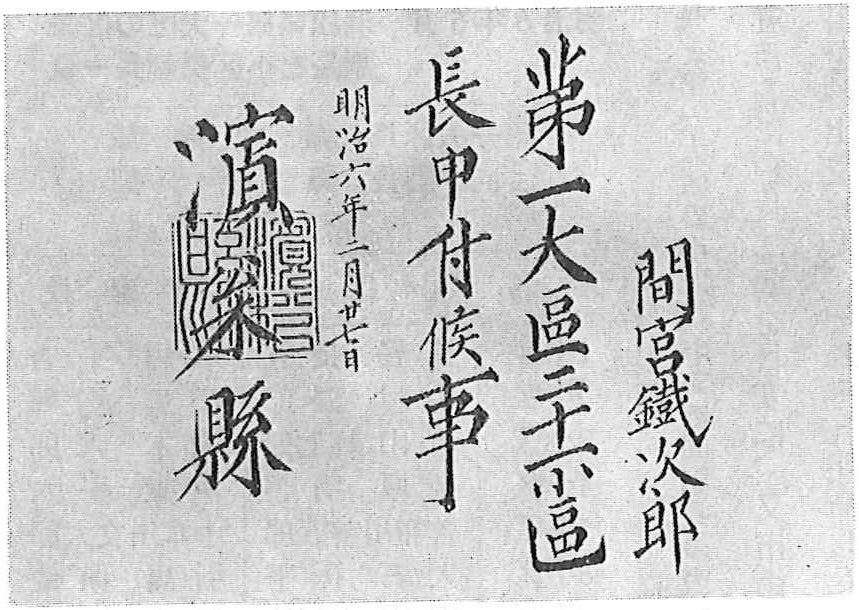 間宮鐵次郎
第一大區三十一小區
長申付候事
明治六年二月廿七日
濱松縣